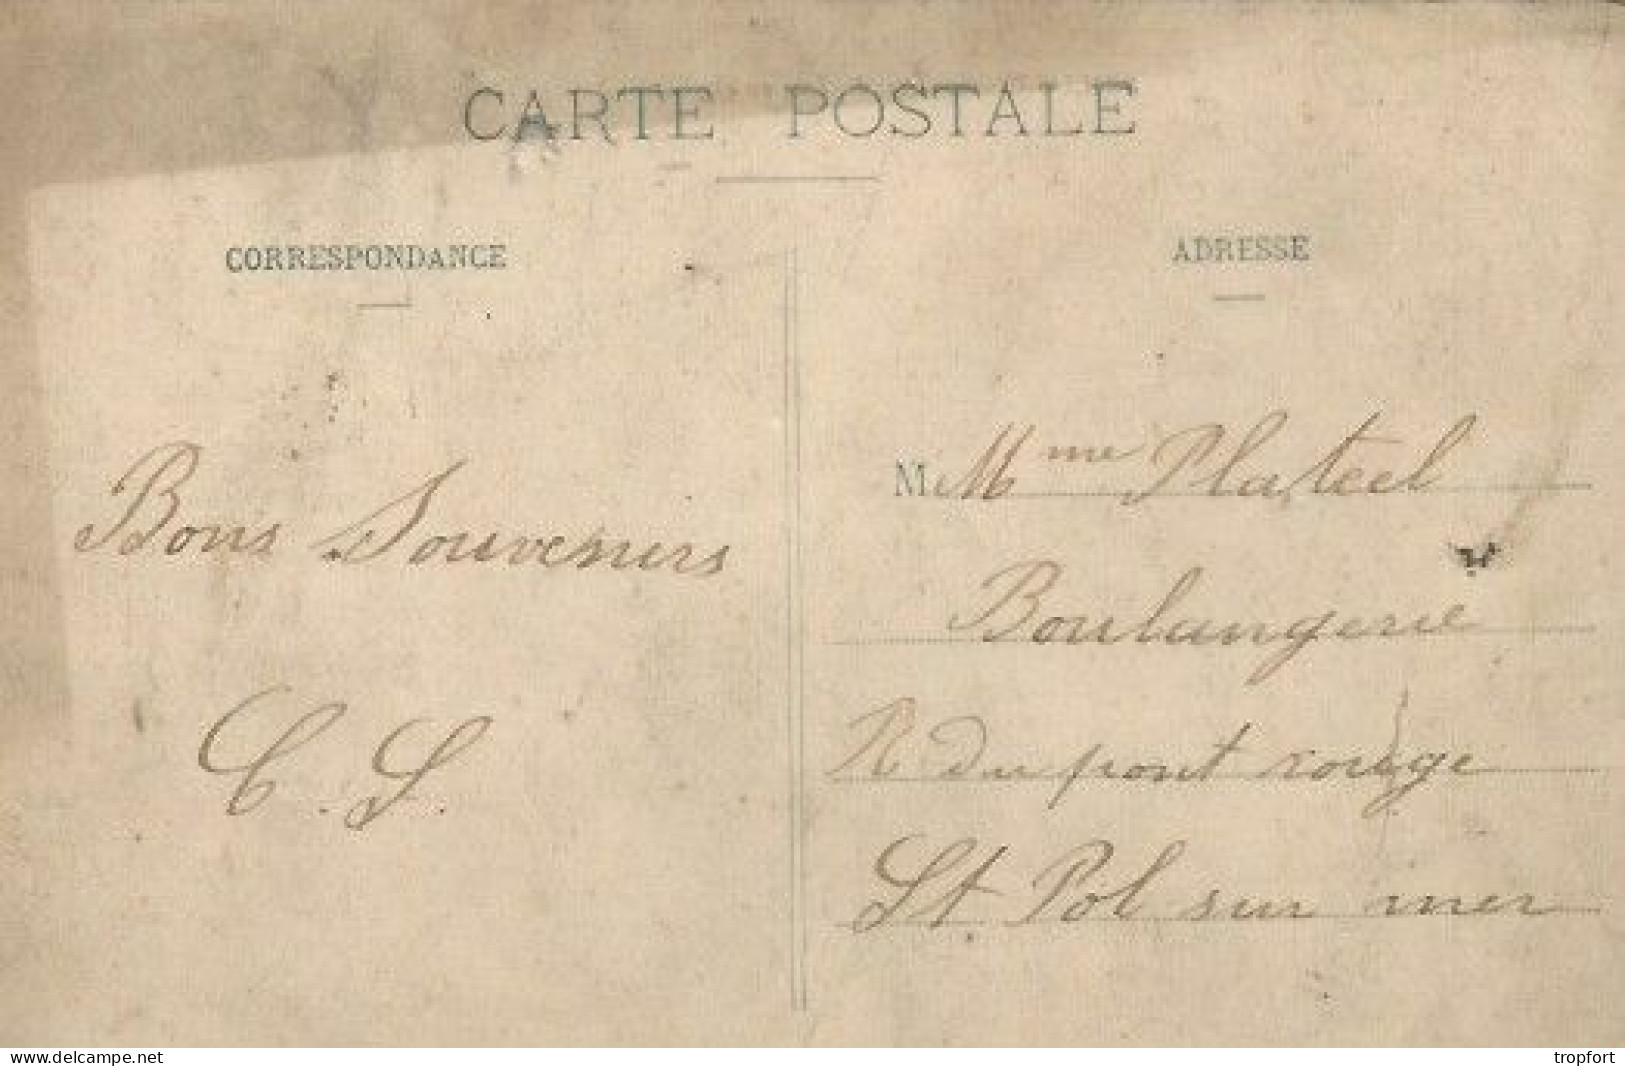 CARTE POSTALE
CORRESPONDANCE
Bons Souvenirs
C. S.
ADRESSE
M Mme Plateel
Boulangerie
R du pont rouge
St Pol sur mer
www.delcampe.net
tropfort